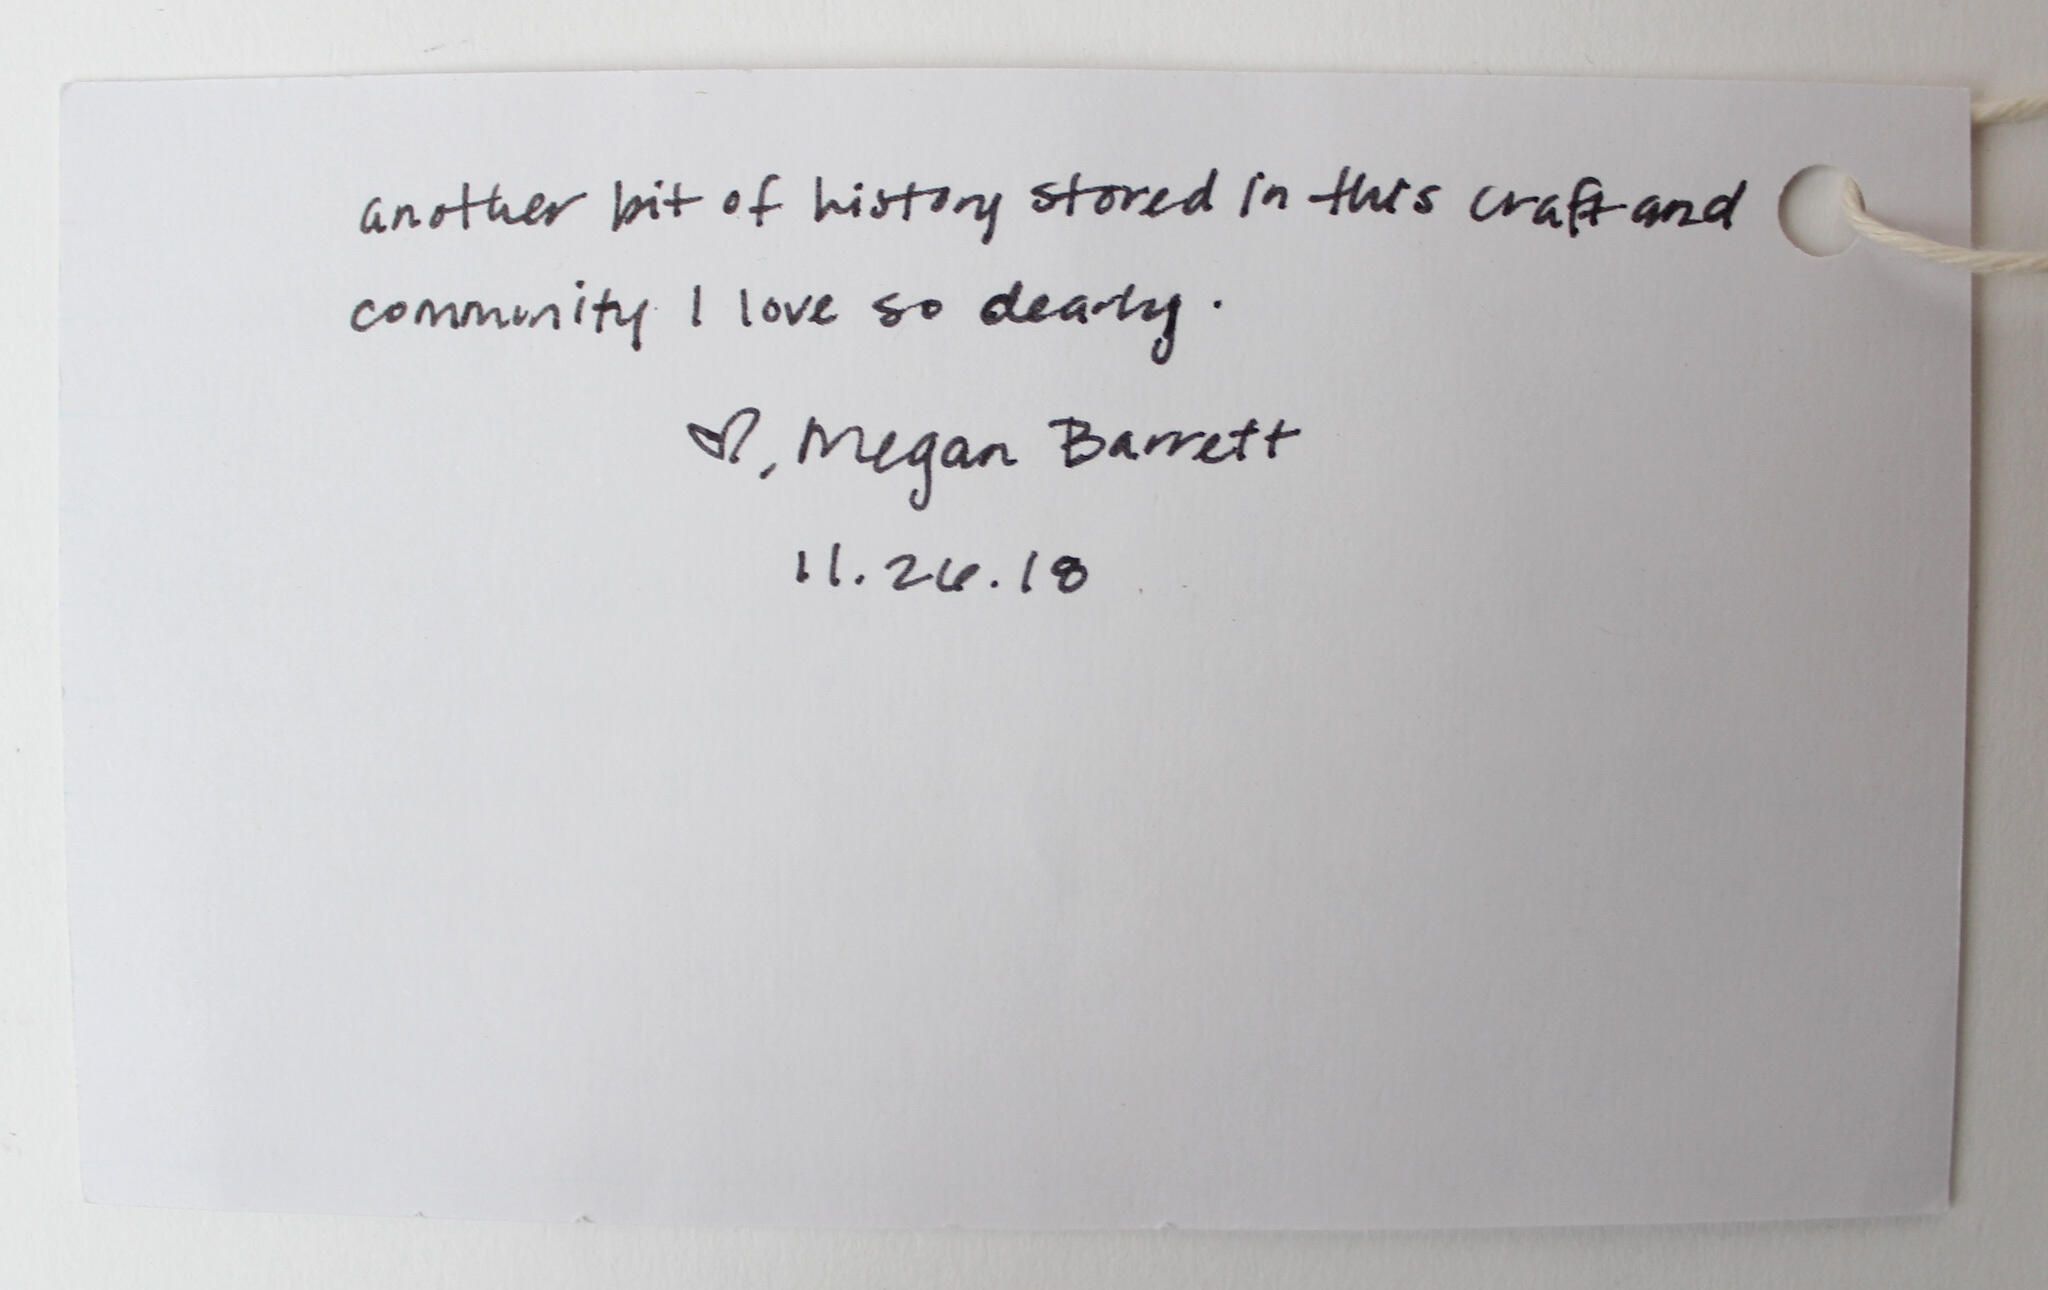 another bit of history stored in this craft and
community I love so dearly.
♡, Megan Barrett
11.26.18